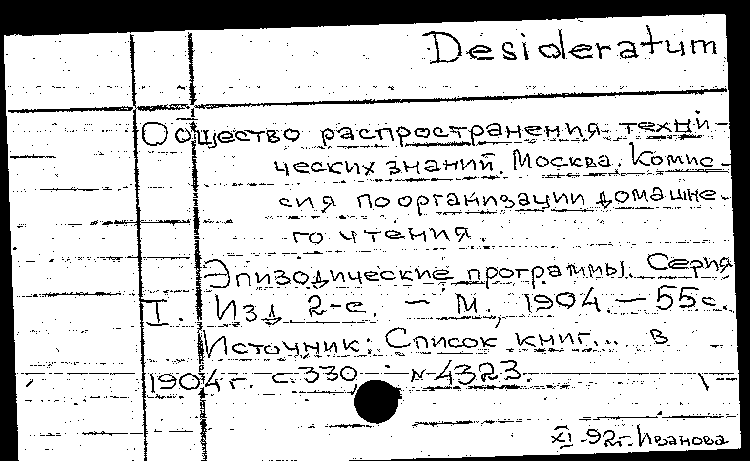 Desideratum
Общество распространения техни-
ческих знаний. Москва. Комис-
сия по организации домашне-
го чтения.
Эпизодические программы. Серия
I. Изд. 2-е. — М., 1904. — 55 с.
Источник: Список книг... в
1904 г. с. 330 N 4323.
XI-92г. Иванова